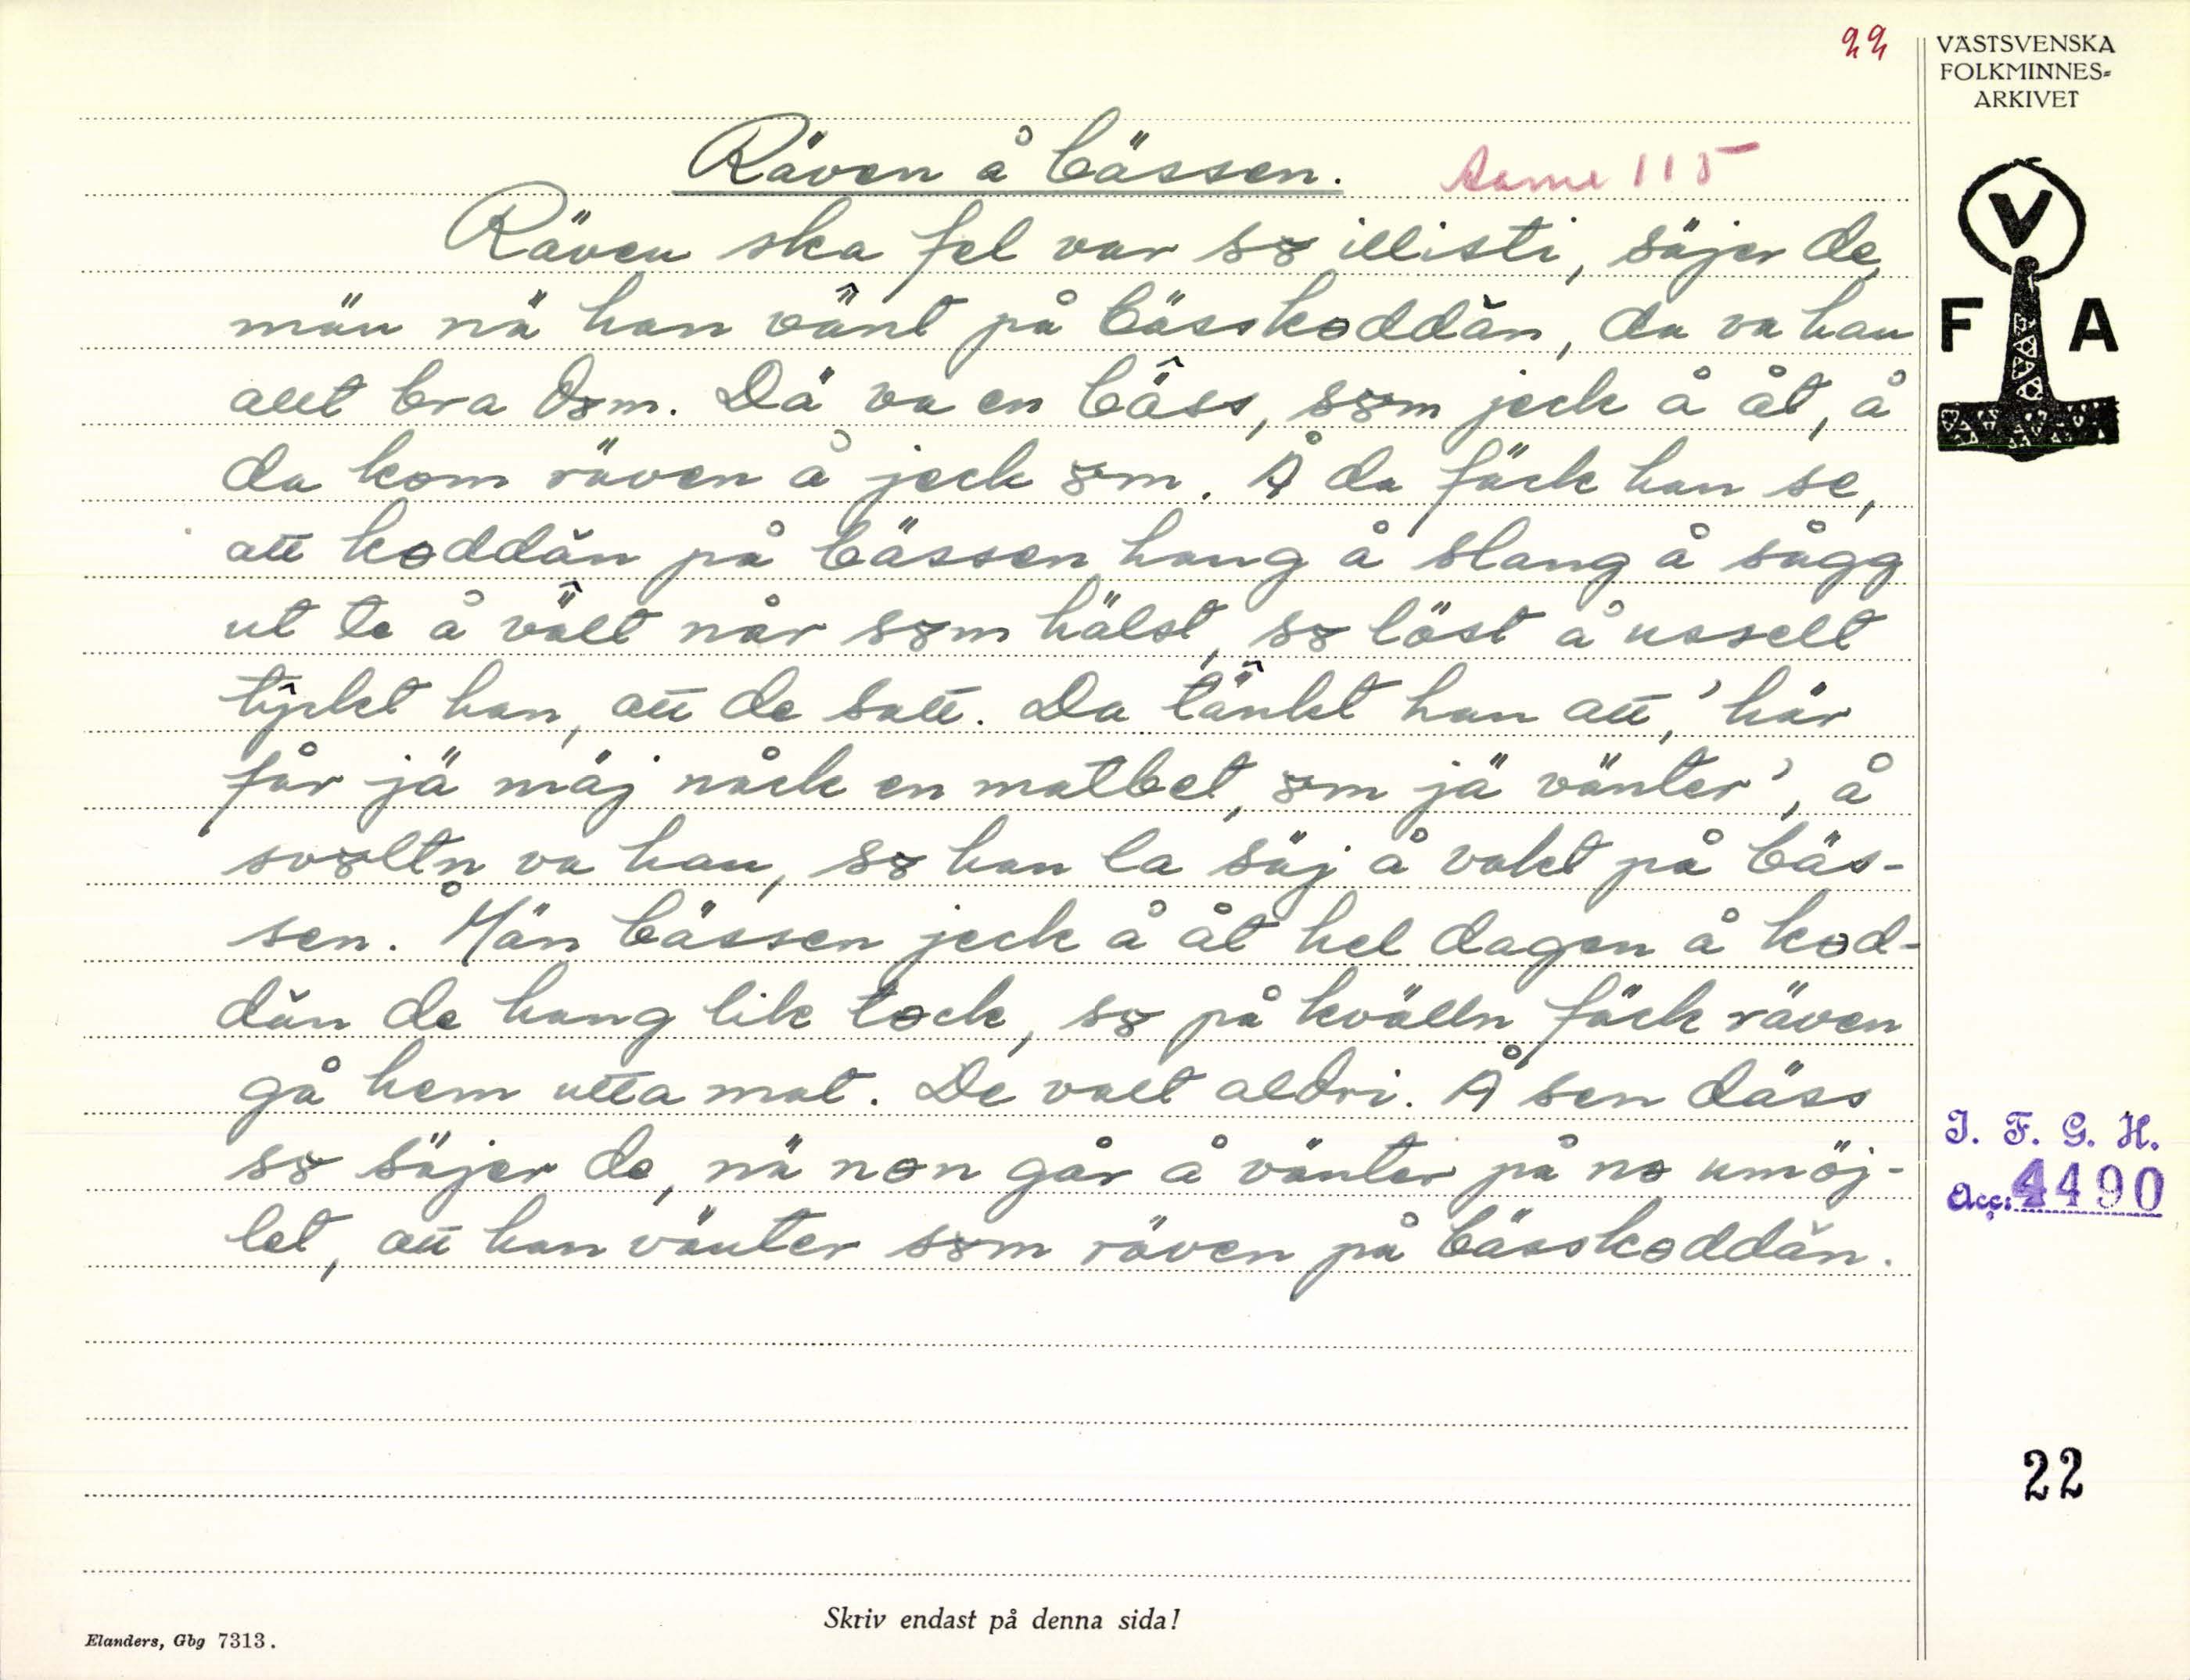 22
VÄSTSVENSKA
FOLKMINNES=
ARKIVET
Räven å bässen. Aarne 115
Räven ska fel var sꝏ illisti, säjer de,
män nä han vänt på bässkoddän, da va han
allt bra dꝏm. Dä va en bäss, sꝏm jeck å åt, å
da kom räven å jeck ꝏm. Å da fäck han se,
att koddän på bässen hang å slang å sågg
ut te å vält når sꝏm hälst, sꝏ löst å uselt
tyckt han, att de satt. Da tänkt han att, 'här
får jä mäj nåck en matbet, ꝏm jä vänter', å
svꝏltn va han, sꝏ han la säj å vakt på bäs-
sen. Män bässen jeck å åt hel dagen å kod-
dän de hang lik tock, sꝏ på kvälln fäck räven
gå hem utta mat. De valt aldri. Å sen däss
sꝏ säjer de, nä non går å vänter på no umöj-
let, att han vänter sꝏm räven på bässkoddän.
V
F A
I. F. G. H.
Acc: 4490
22
Skriv endast på denna sida!
Elanders, Gbg 7313.